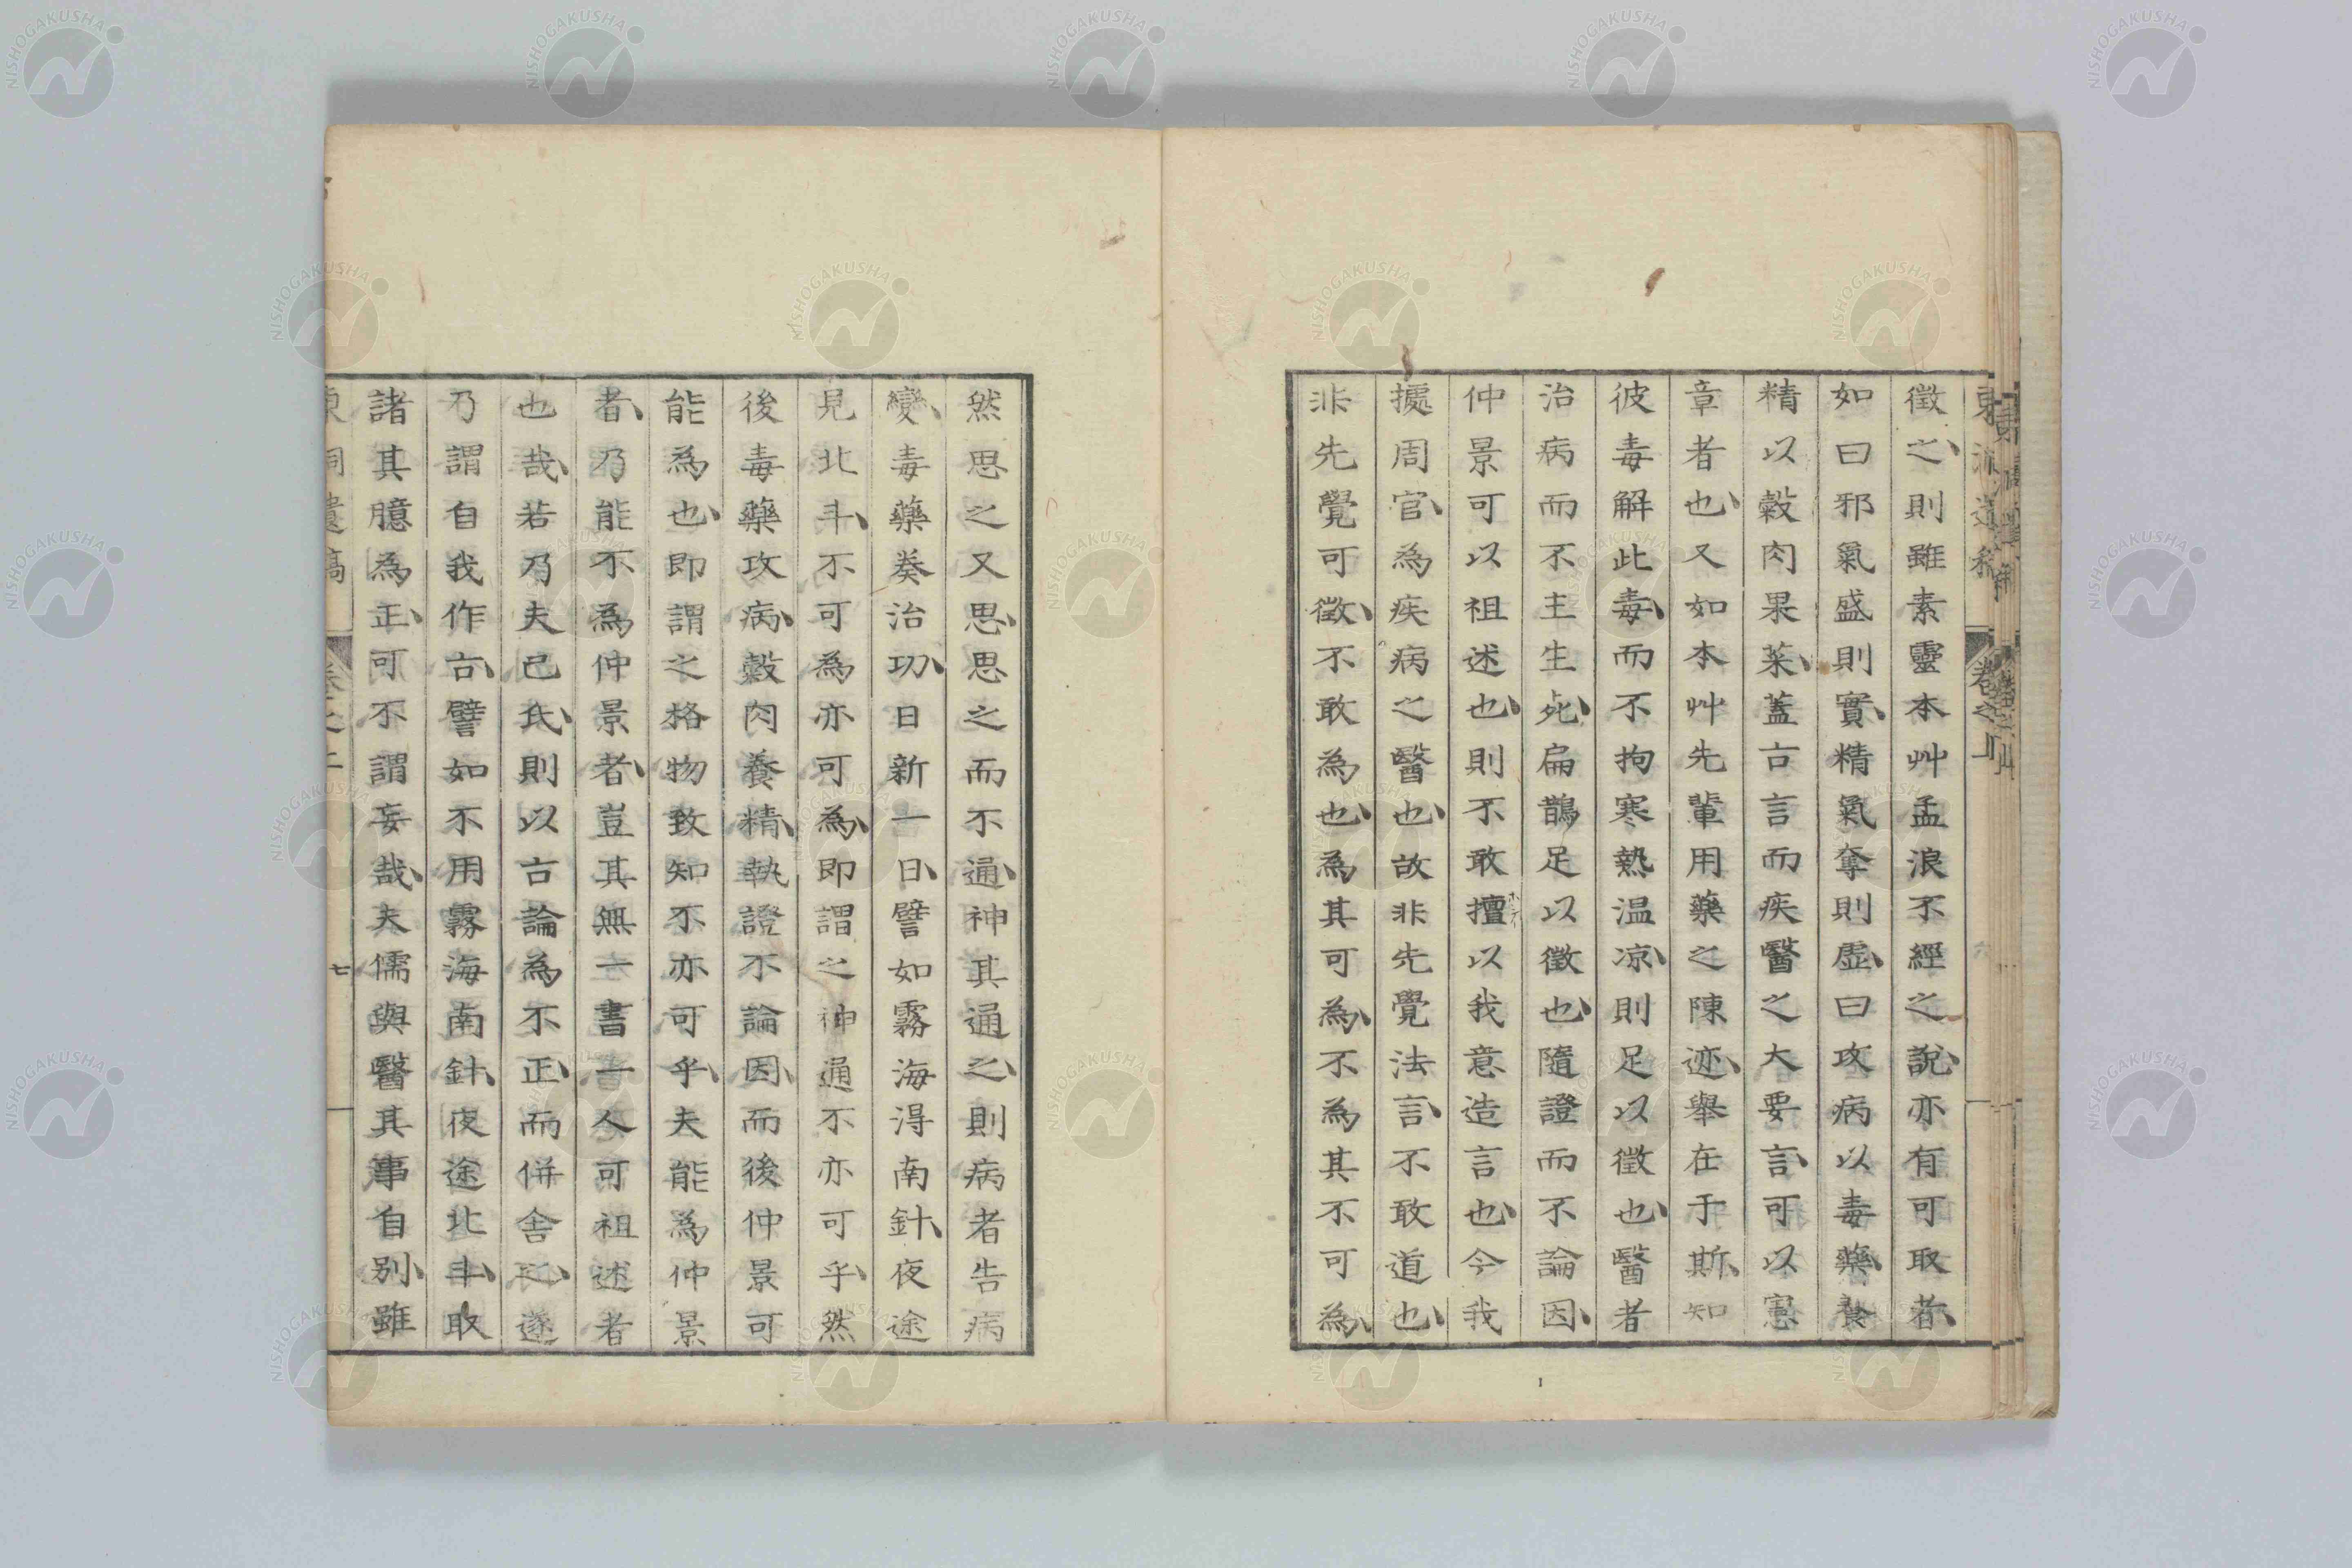 徵之、則雖素靈本艸孟浪不經之說、亦有可取者、
如曰邪氣盛則實、精氣奪則虛、曰攻病以毒藥、養
精以穀肉果菜、蓋古言而疾醫之大要言、可以憲
章者也、又如本艸先輩用藥之陳迹、舉在于斯、知
彼毒解此毒、而不拘寒熱温凉、則足以徵也、醫者
治病而不主生死、扁鵲足以徵也、隨證而不論因、
仲景可以祖述也、則不敢擅以我意造言也、今我
據周官、為疾病之醫也、故非先覺法言、不敢道也、
非先覺可徵、不敢為也、為其可為、不為其不可為、
然思之又思、思之而不通、神其通之、則病者告病
變、毒藥奏治功、日新一日、譬如霧海得南針、夜途
見北斗、不可為亦可為、即謂之神通不亦可乎、然
後毒藥攻病、穀肉養精、執證不論因、而後仲景可
能為也、即謂之格物致知不亦可乎、夫能為仲景
者、乃能不為仲景者、豈其無一書一人可祖述者
也哉、若乃夫己氏、則以古論為不正、而併舍之、遂
乃謂自我作古、譬如不用霧海南針、夜途北斗、取
諸其臆為正、可不謂妄哉、夫儒與醫其事自別、雖
東洞遺稿
卷之上
七
NISHOGAKUSHA